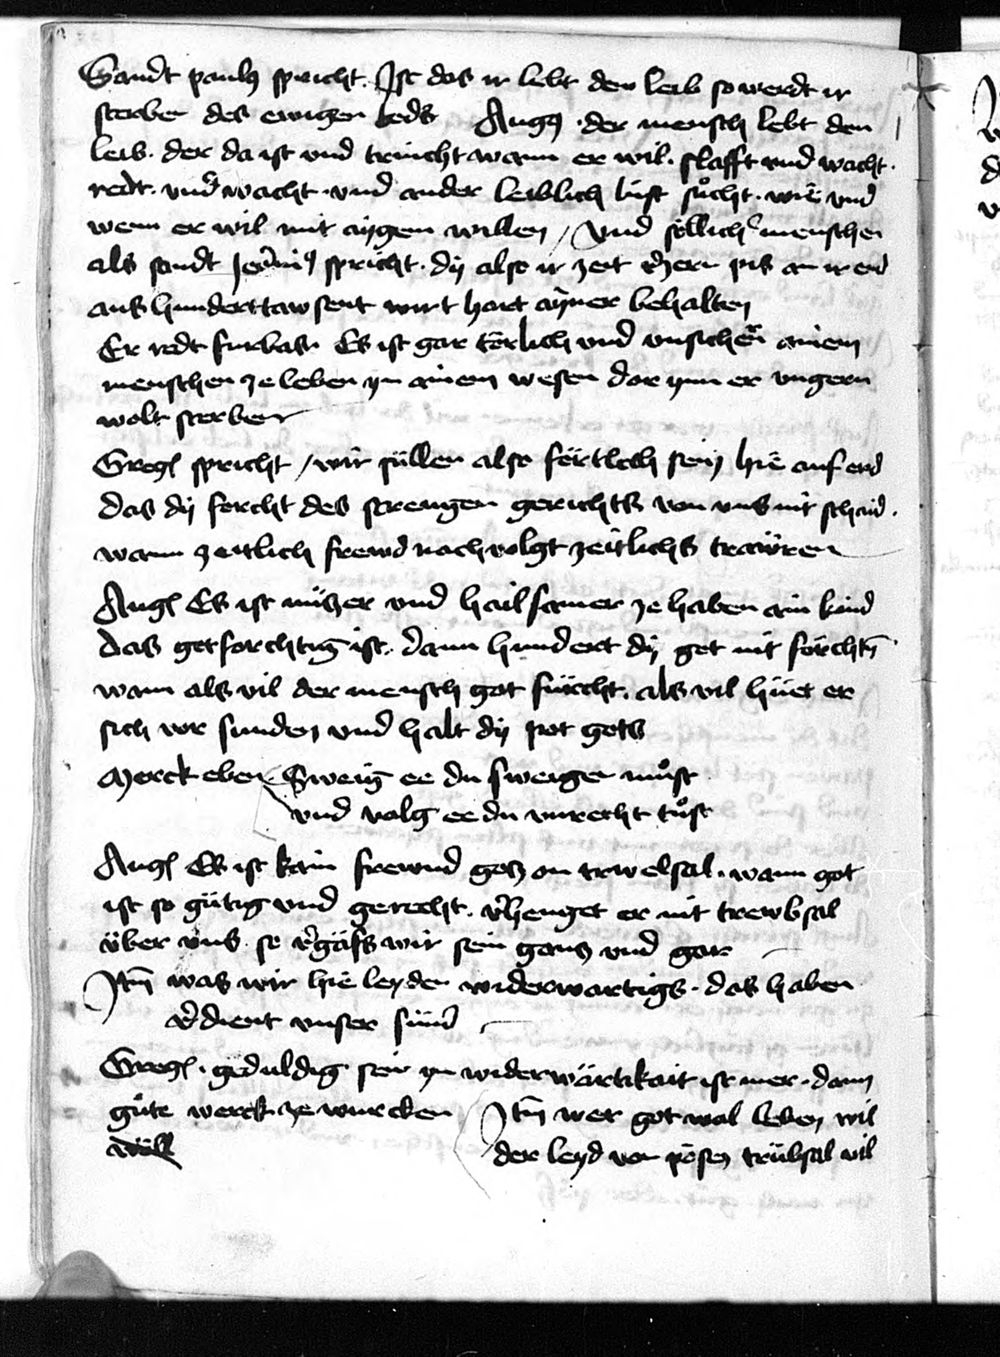 Sandt pauls spricht. Ist das ir lebt dem leib so werdt ir
sterben des ewigen tods Augꝰ. der mensch lebt dem
leib. der da ist vnd trincht wann er wil. slafft vnd wacht.
redt. vnd wacht. vnd ander leiblich lust sůcht. wie vnd
wenn er wil mit aygem willen / Vnd sollich menschen
als sandt Jeronimꝰ spricht. dy also ir zeit v̄zern pis an ir end
aus hunderttawsent wirt hart ayner behalten
Er redt furbas. Es ist gar tōrlich vnd vnsicher ainem
menschen ze leben yn ainem wesen dar ynn er vngern
wolt sterben
Greg spricht / wir süllen also förchtlich seyn hie auf erd
das dy forcht des strengen gerichts von vns nit schaid.
wann zeitlich frewd nachvolgt zeitlichs trawren
Aug Es ist nützer vnd hailsamer ze haben ain kind
das gotforchtig ist. dann hundert dy got nit förchtn̄
wann als vil der mensch got fürcht. als vil hüet er
sich vor sunden vnd halt dy pot gots
Merck eben Sweig ee du sweigen můst
vnd volg ee du vnrecht tůst
Aug Es ist kain frewnd gots on trwebsal. wann got
ist so gütig vnd gerecht. v̄henget er nit trewbsal
über vns. so v̄gäss wir sein gans vnd gar
Itm̄ was wir hie leyden widerwartigs. das haben
v̄dient vnser sünd
Greg. geduldig sein yn widerwärtikait ist mer. dann
gůte werck ze wurcken Itm̄ wer got wol leben wil
der leyd von pösen trübsal vil